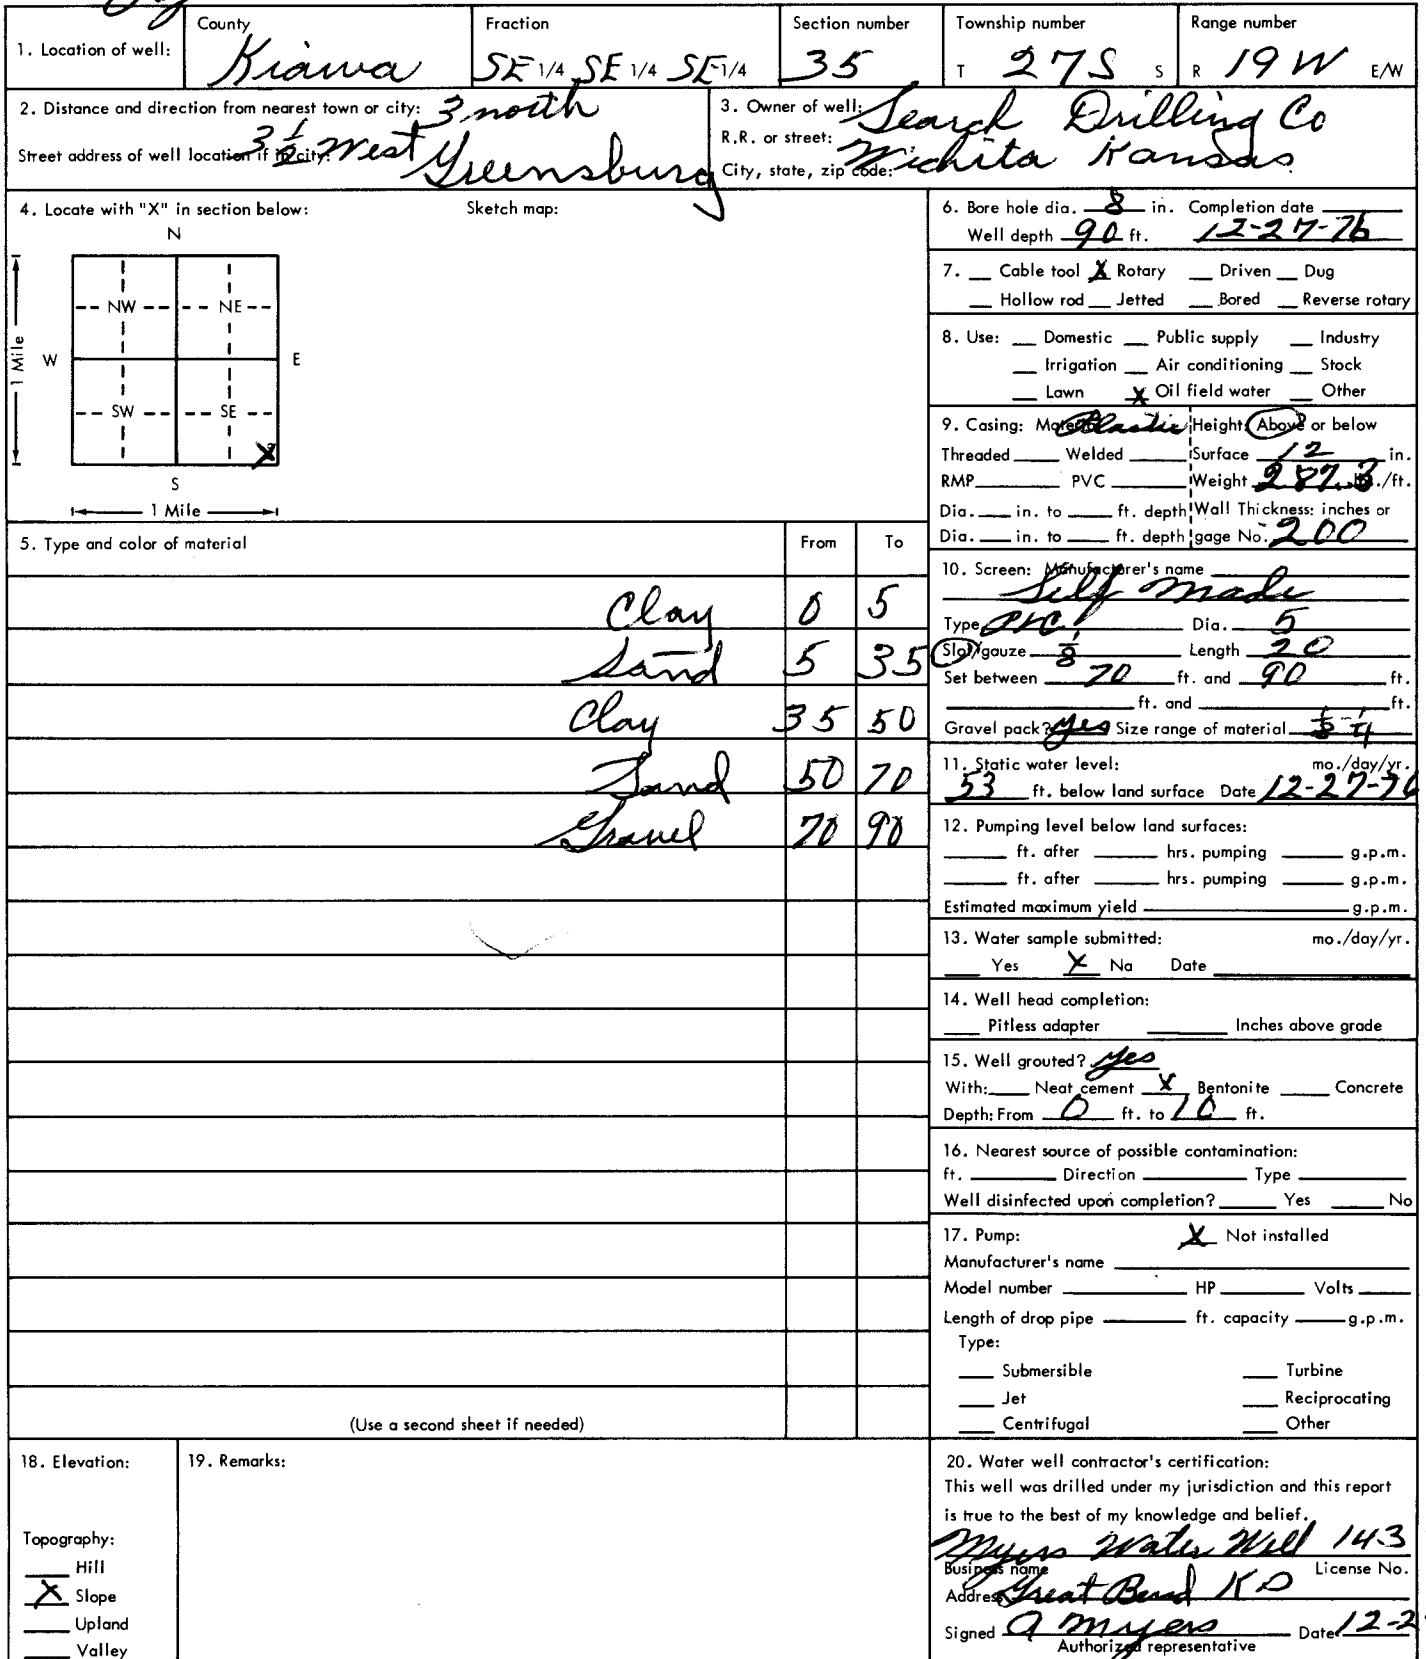 1. Location of well: County Kiowa Fraction SE 1/4 SE 1/4 SE 1/4 Section number 35 Township number T 27S S Range number R 19W E/W
2. Distance and direction from nearest town or city: 3 north
Street address of well location if in city: 3 1/2 West Greensburg
3. Owner of well: Search Drilling Co
R.R. or street:
City, state, zip code: Wichita Kansas
4. Locate with "X" in section below: Sketch map:
N
NW NE
W E
1 Mile
SW SE
X
S
1 Mile
5. Type and color of material From To
Clay 0 5
Sand 5 35
Clay 35 50
Sand 50 70
Gravel 70 90
(Use a second sheet if needed)
6. Bore hole dia. 8 in. Completion date
Well depth 90 ft. 12-27-76
7. __ Cable tool X Rotary __ Driven __ Dug
__ Hollow rod __ Jetted __ Bored __ Reverse rotary
8. Use: __ Domestic __ Public supply __ Industry
__ Irrigation __ Air conditioning __ Stock
__ Lawn X Oil field water __ Other
9. Casing: Material Plastic Height: Above or below
Threaded ____ Welded ____ Surface 12 in.
RMP ____ PVC ____ Weight 287.3 lbs./ft.
Dia. __ in. to __ ft. depth Wall Thickness: inches or
Dia. __ in. to __ ft. depth gage No. 200
10. Screen: Manufacturer's name
Self made
Type PVC Dia. 5
Slot/gauze 1/8 Length 20
Set between 70 ft. and 90 ft.
____ ft. and ____ ft.
Gravel pack? yes Size range of material
11. Static water level: mo./day/yr.
53 ft. below land surface Date 12-27-76
12. Pumping level below land surfaces:
____ ft. after ____ hrs. pumping ____ g.p.m.
____ ft. after ____ hrs. pumping ____ g.p.m.
Estimated maximum yield ____ g.p.m.
13. Water sample submitted: mo./day/yr.
__ Yes X No Date ____
14. Well head completion:
__ Pitless adapter ____ Inches above grade
15. Well grouted? yes
With: __ Neat cement X Bentonite __ Concrete
Depth: From 0 ft. to 10 ft.
16. Nearest source of possible contamination:
ft. ____ Direction ____ Type ____
Well disinfected upon completion? ____ Yes ____ No
17. Pump: X Not installed
Manufacturer's name ____
Model number ____ HP ____ Volts ____
Length of drop pipe ____ ft. capacity ____ g.p.m.
Type:
__ Submersible __ Turbine
__ Jet __ Reciprocating
__ Centrifugal __ Other
18. Elevation:
Topography:
__ Hill
X Slope
__ Upland
__ Valley
19. Remarks:
20. Water well contractor's certification:
This well was drilled under my jurisdiction and this report
is true to the best of my knowledge and belief.
Myers Water Well 143
Business name License No.
Address Great Bend KS
Signed A Myers Date 12-2
Authorized representative